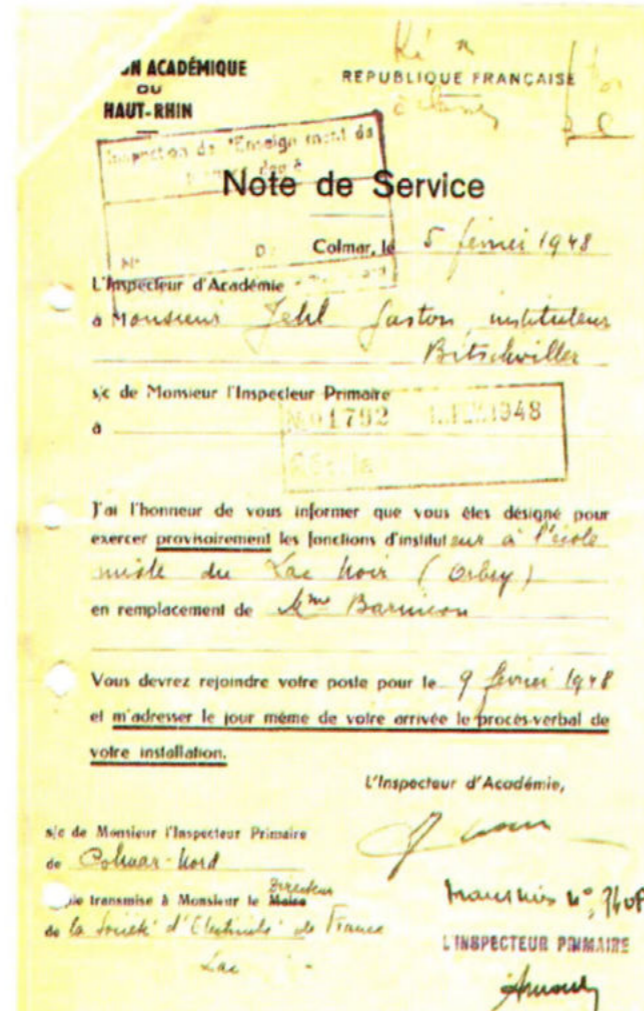 ON ACADÉMIQUE
DU
HAUT-RHIN
RÉPUBLIQUE FRANÇAISE
Inspection de l'Enseignement du
Note de Service
Colmar, le 5 février 1948
L'Inspecteur d'Académie
à Monsieur Jehl Gaston, instituteur
Bitschwiller
s/c de Monsieur l'Inspecteur Primaire
à
N° 01792 1948
J'ai l'honneur de vous informer que vous êtes désigné pour
exercer provisoirement les fonctions d'instituteur à l'école
mixte du Lac Noir (Orbey)
en remplacement de Mme Barincou
Vous devrez rejoindre votre poste pour le 9 février 1948
et m'adresser le jour même de votre arrivée le procès-verbal de
votre installation.
L'Inspecteur d'Académie,
s/c de Monsieur l'Inspecteur Primaire
de Colmar-Nord
Directeur
pie transmise à Monsieur le Maire
de la Société d'Electricité de France
Lac
transmis n°
L'INSPECTEUR PRIMAIRE